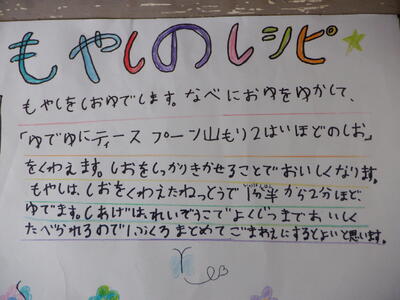 もやしのレシピ
もやしをしおゆでします。なべにおゆをゆかして、
「ゆでゆにティースプーン山もり2はいほどのしお」
をくわえます。しおをしっかりきかせることでおいしくなります。
もやしは、しおをくわえたねっとうで1分半から2分ほど、
ゆでます。しあげは、れいぞうこでよくじつまでおいしく
たべられるので1ふくろまとめてごまあえにするとよいと思います。